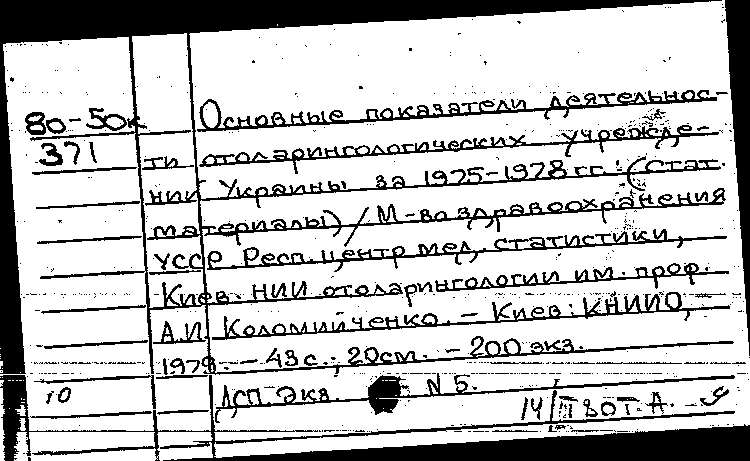 80-50к Основные показатели деятельнос-
371 ти отоларингологических учрежде-
ний Украины за 1975-1978 гг.: (Стат.
материалы) / М-во здравоохранения
УССР. Респ. центр мед. статистики,
Киев. НИИ отоларингологии им. проф.
А.И. Коломийченко. - Киев: КНИИО,
1979. - 43 с.; 20см. - 200 экз.
10 ДСП. Экз. N 5.
14/II 80 Т. А.